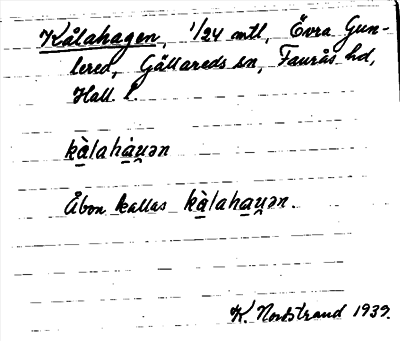 Kålahagen, 1/24 mtl, Övra Gun-
lered, Gällareds sn, Faurås hd,
Hall. l.
kàlahàu̯ən
Åbon kallas kàlahau̯ən.
K. Nordstrand 1939.